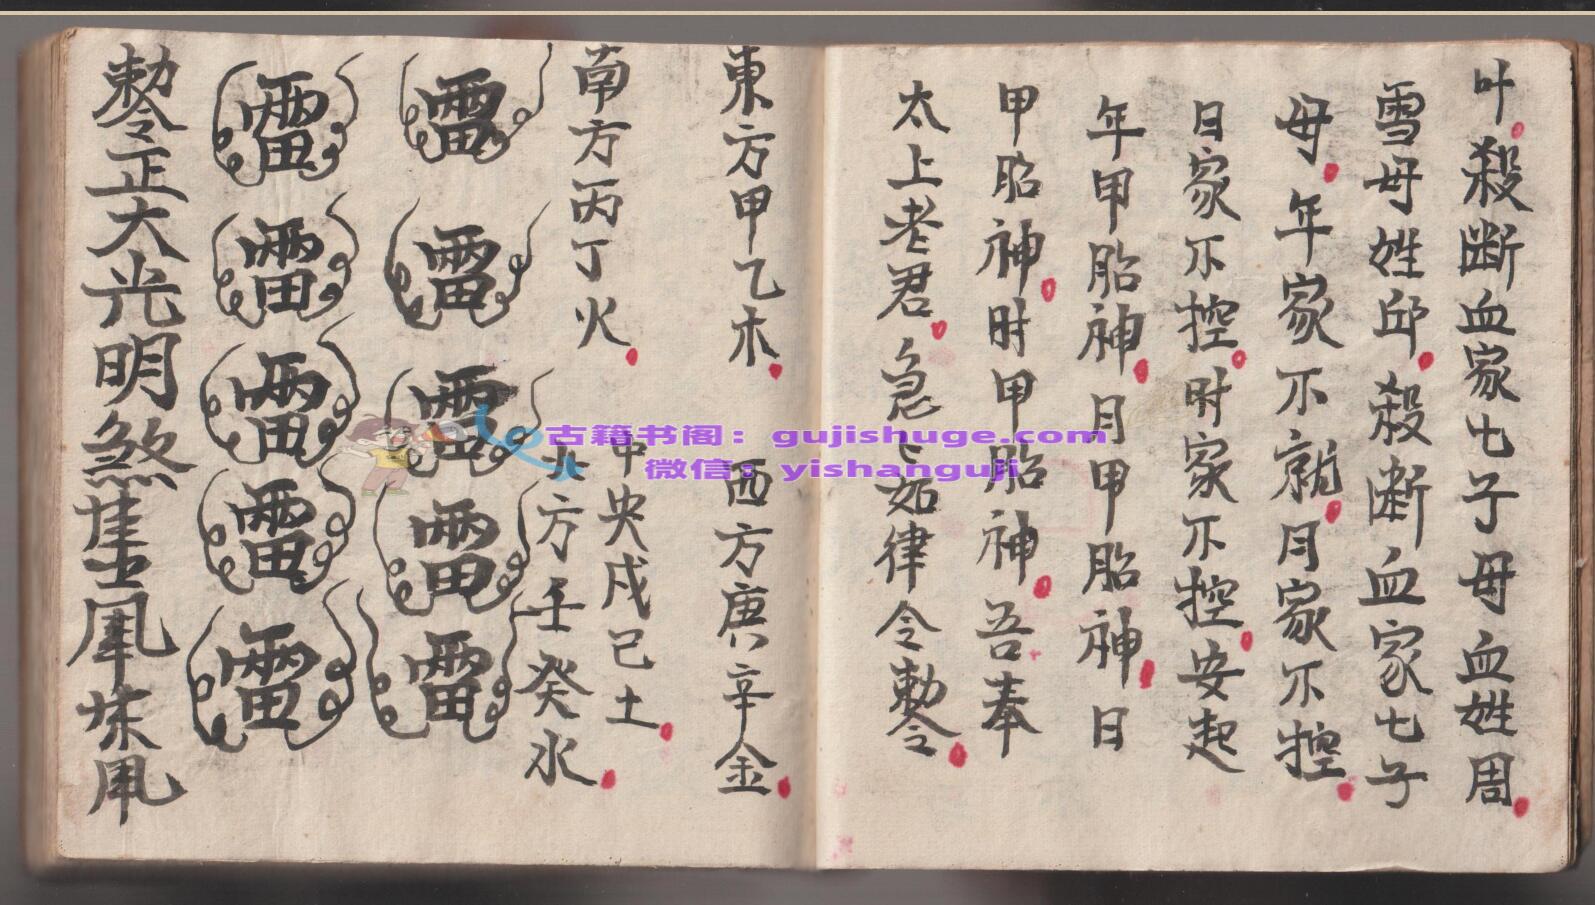 叶殺断血家七子母血姓周
雪母姓邱殺断血家七子
母年家不就月家不控
日家不控时家不控安起
年甲胎神月甲胎神日
甲胎神时甲胎神吾奉
太上老君急〻如律令勅令
東方甲乙木 西方庚辛金
南方丙丁火 中央戍己土
方壬癸水
雷雷雷雷雷
雷雷雷雷雷
勅令正大光明煞
古籍书阁：gujishuge.com
微信：yishanguji